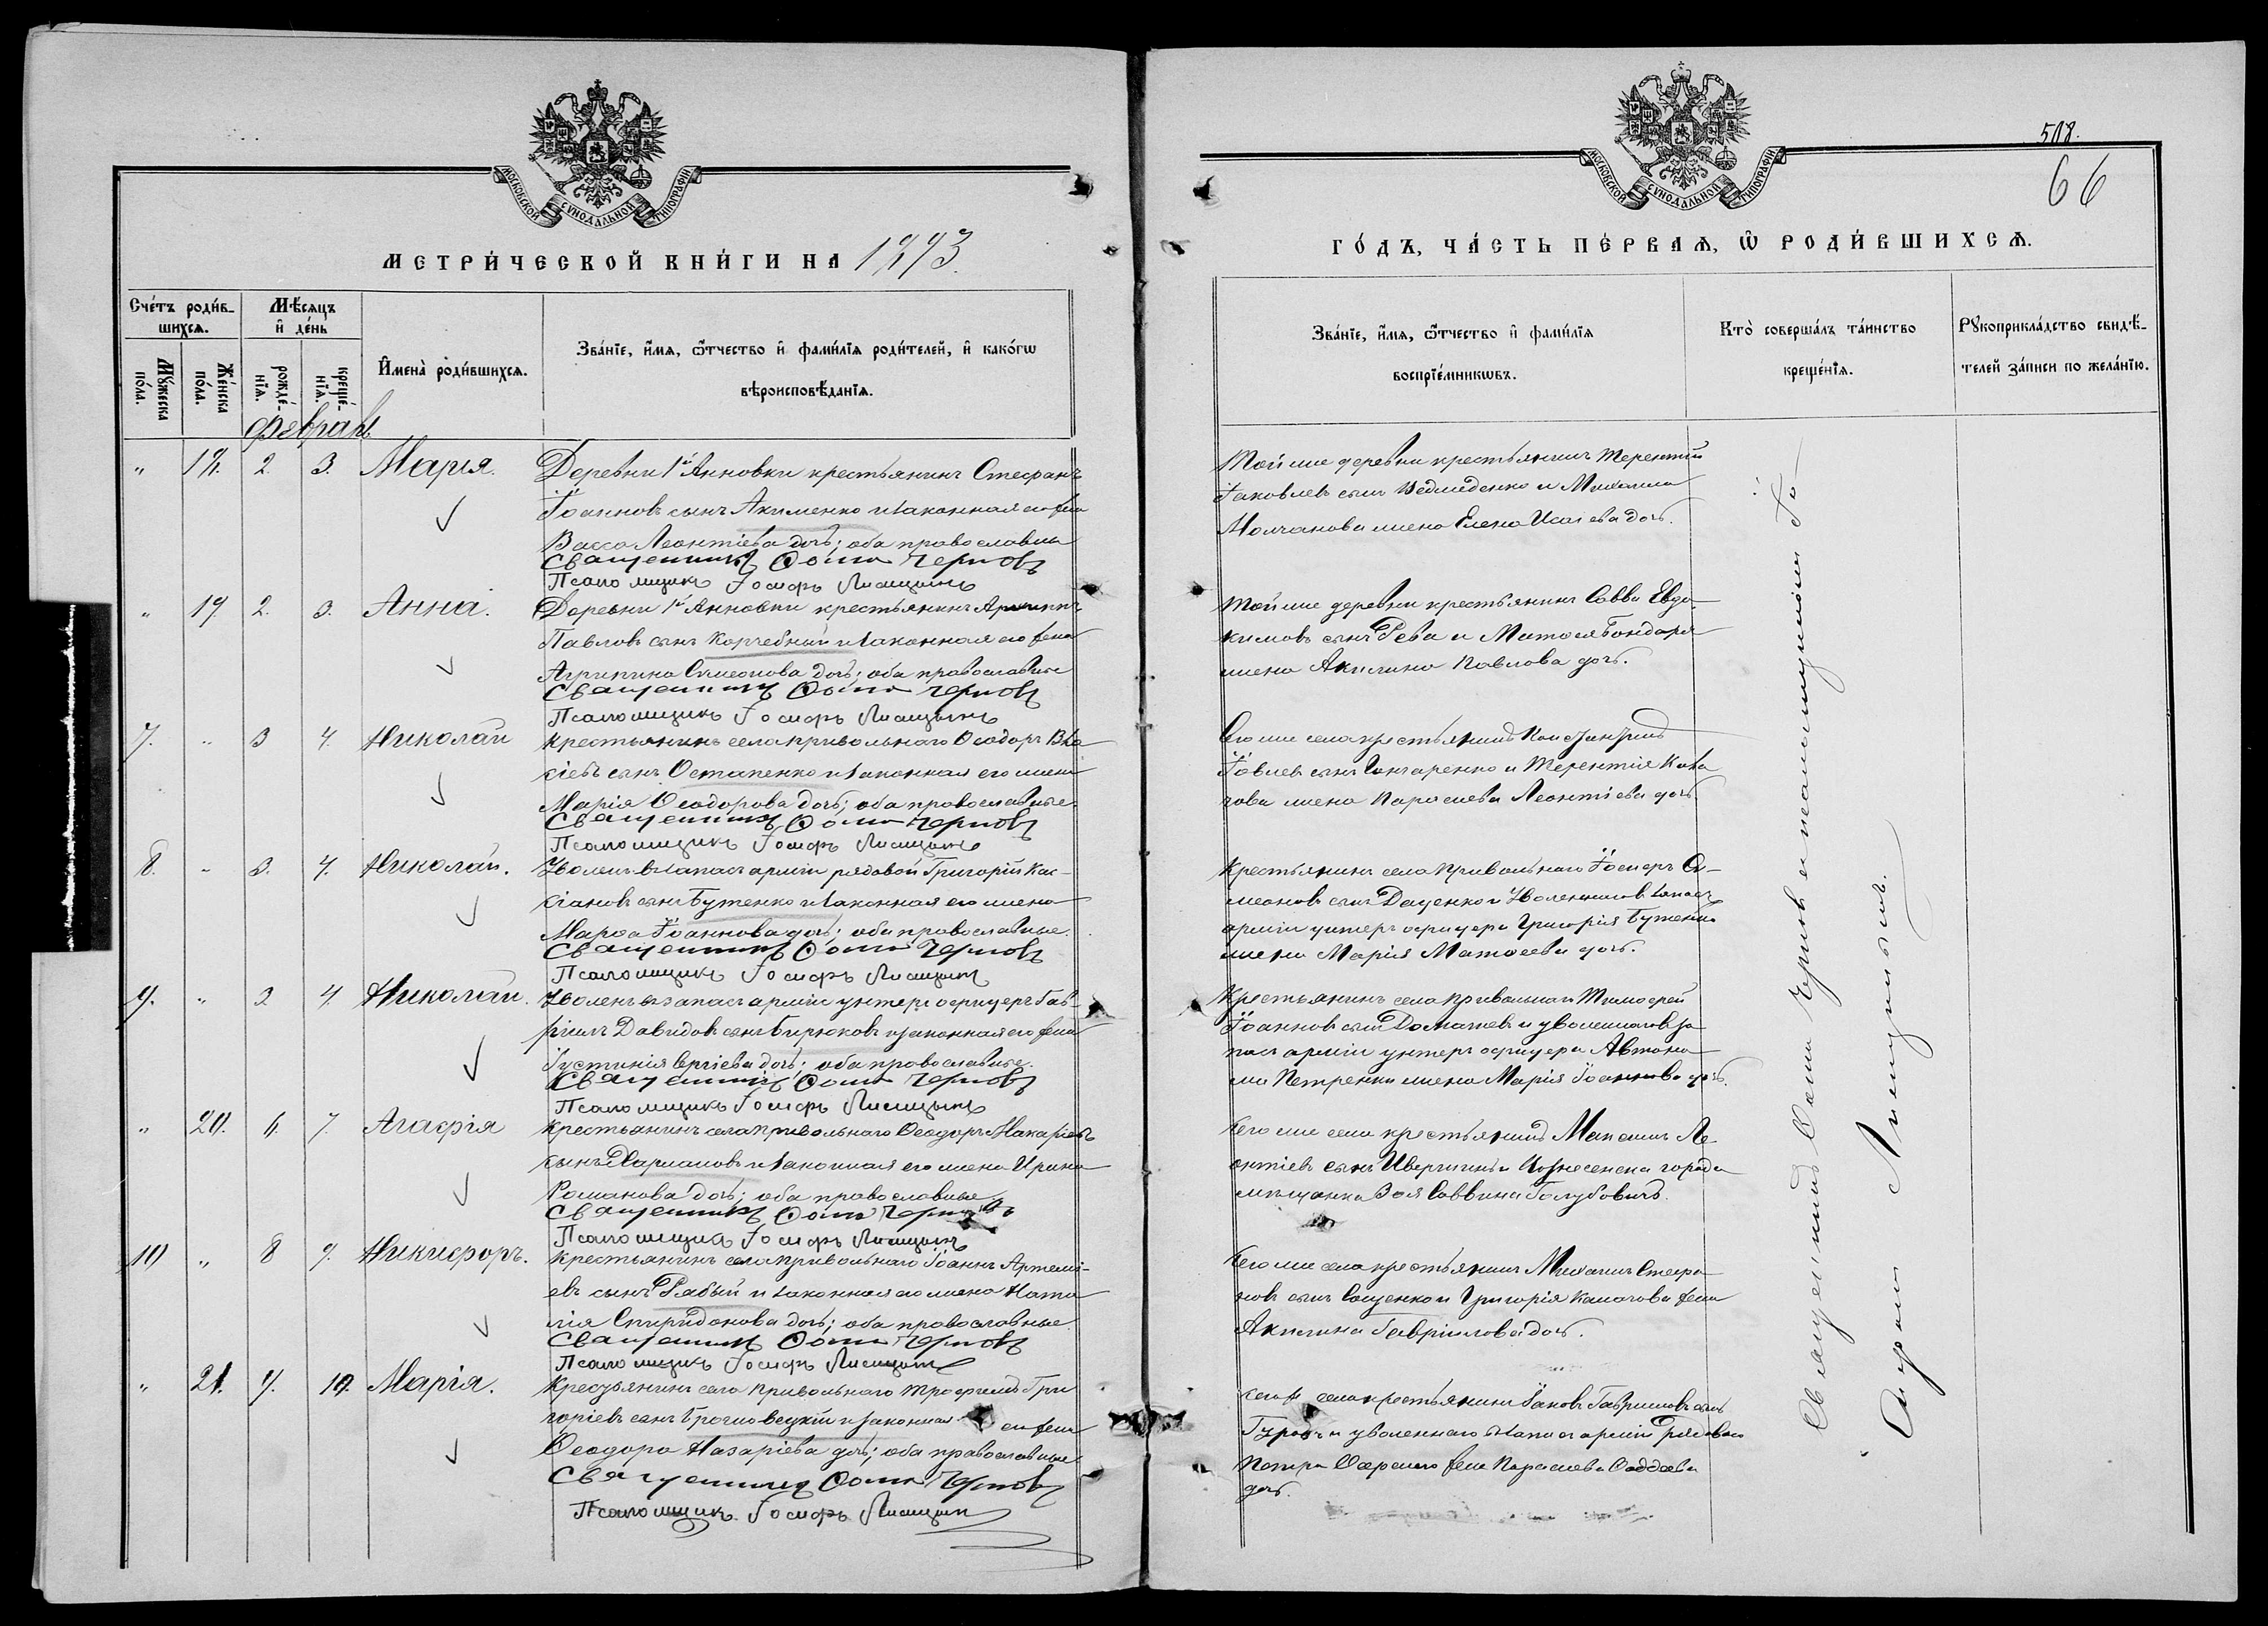 МОСКОВСКОЙ СУНОДАЛЬНОЙ ТИПОГРАФІИ
МЕТРИ́ЧЕСКОЙ КНИ́ГИ НА 1893.
Сче́тъ роди́в-
шихсѧ.
Мѣ́сѧцъ
и҆ де́нь
И҆мена̀ роди́вшихсѧ.
Зва́нїе, и҆́мѧ, ѻ҆́тчество и҆ фами́лїѧ роди́телей, и҆ како́гѡ
вѣроисповѣ́данїѧ.
Мꙋ́жеска
по́ла.
Же́нска
по́ла.
рожде́-
нїѧ.
креще́-
нїѧ.
Февраль
" 18. 2. 3. Марія.
Деревни 1й Анновки крестьянинъ Стефанъ
Іоанновъ сынъ Акименко и законная его жена
Васса Леонтіева дочь; оба православны
Священникъ Ѳома Черновъ
Псаломщикъ Іосифъ Лисицынъ
" 19. 2. 3. Анна.
Деревни 1й Анновки крестьянинъ Архиппъ
Павловъ сынъ Корчебный и законная его жена
Агрипина Симеонова дочь; оба православные
Священникъ Ѳома Черновъ
Псаломщикъ Іосифъ Лисицынъ
7. " 3 4. Николай
Крестьянинъ села Привольнаго Ѳеодоръ Вла-
сіевъ сынъ Остапенко и законная его жена
Марія Ѳеодорова дочь; оба православные.
Священникъ Ѳома Черновъ
Псаломщикъ Іосифъ Лисицынъ
8. " 3. 4. Николай.
Уволенъ въ запасъ арміи рядовой Григорій Кас-
сіановъ сынъ Бутенко и законная его жена
Марѳа Іоаннова дочь; оба православные.
Священникъ Ѳома Черновъ
Псаломщикъ Іосифъ Лисицынъ
9. " 3 4 Николай.
Уволенъ въ запасъ арміи унтеръ офицеръ Гав-
ріилъ Давидовъ сынъ Бирюковъ и законная его жена
Іустинія Сергіева дочь; оба православные.
Священникъ Ѳома Черновъ
Псаломщикъ Іосифъ Лисицынъ
" 20. 6. 7. Агафія
Крестьянинъ села Привольнаго Ѳеодоръ Макаріевъ
сынъ и законная его жена Ирина
Романова дочь; оба православные
Священникъ Ѳома Черновъ
Псаломщикъ Іосифъ Лисицынъ
10 " 8 9. Никифоръ.
Крестьянинъ села Привольнаго Іоаннъ Артемі-
евъ сынъ Рябый и законная его жена Ната-
лія Спиридонова дочь; оба православные.
Священникъ Ѳома Черновъ
Псаломщикъ Іосифъ Лисицынъ
" 21. 9. 10. Марія.
Крестьянинъ села Привольнаго Трофимъ Гри-
горіевъ сынъ и законная его жена
Ѳеодора Назаріева дочь; оба православные
Священникъ Ѳома Черновъ
Псаломщикъ Іосифъ Лисицынъ
МОСКОВСКОЙ СУНОДАЛЬНОЙ ТИПОГРАФІИ
508.
66
ГО́ДЪ, ЧА́СТЬ ПЕ́РВАѦ, Ѡ҆ РОДИ́ВШИХСѦ.
Зва́нїе, и҆́мѧ, ѻ҆́тчество и҆ фами́лїѧ
воспрїе́мникѡвъ.
Кто̀ соверша́лъ та́инство
креще́нїѧ.
Рꙋкоприкла́дство свидѣ́-
телей за́писи по жела́нїю.
Той же деревни крестьянинъ Терентій
Іаковлевъ сынъ Недведенко и Михаила
Молчанова жена Елена Исаіева дочь.
Той же деревни крестьянинъ Савва Евдо-
кимовъ сынъ Рева и Матѳея Бондаря
жена Акилина Павлова дочь.
Сего же села крестьянинъ Константинъ
Іовлевъ сынъ Гончаренко и Терентія Кова-
жена Параскева Леонтіева дочь.
Крестьянинъ села Привольнаго Іосифъ Си-
меоновъ сынъ Даценко и уволеннаго въ запасъ
арміи унтеръ офицера Григорія Бутенко
жена Марія Матѳеева дочь.
Крестьянинъ села Привольнаго Тимофей
Іоанновъ сынъ и уволеннаго въ за-
пасъ арміи унтеръ офицера Автоно-
ма Петренко жена Марія Іоаннова дочь.
Сего же села крестьянинъ Максимъ Ле-
онтіевъ сынъ и Вознесенска города
мѣщанка Зоя Саввина Голубовичъ.
Сего же села крестьянинъ Михаилъ Стефа-
новъ сынъ Сощенко и Григорія жена
Акилина Гавріилова дочь.
Сего села крестьянинъ Іаковъ Гавріиловъ сынъ
и уволеннаго въ запасъ арміи рядоваго
Петра жена Параскева Ѳаддѣева
дочь.
Священникъ Ѳома Черновъ и псаломщикомъ Іо-
сифомъ Лисицынымъ.